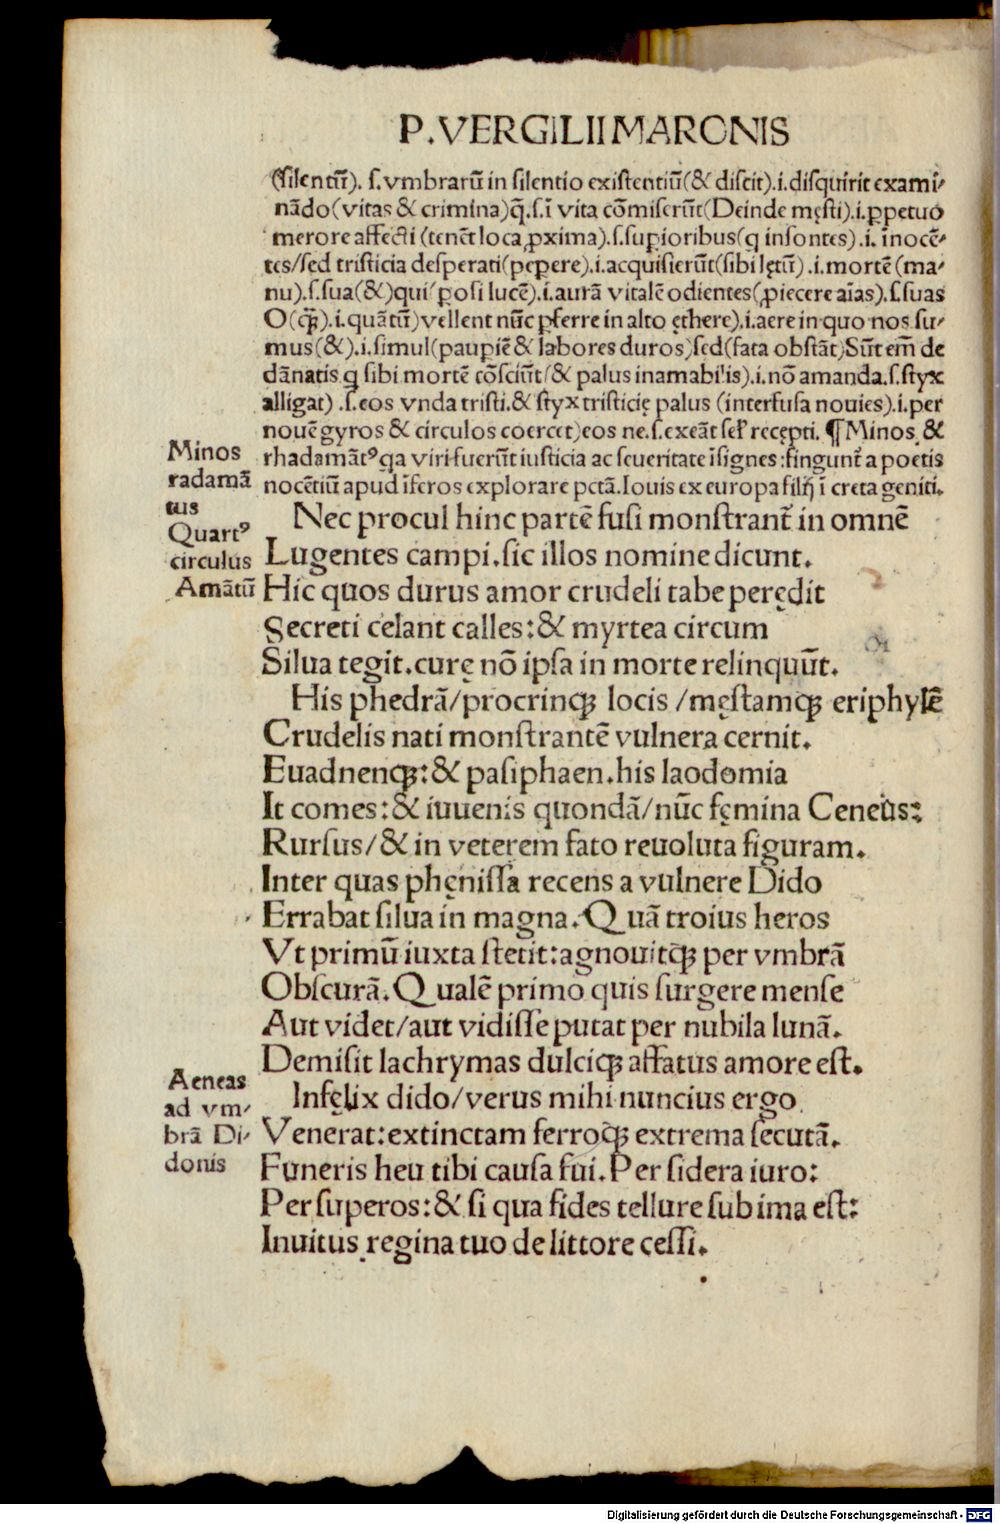 P.VERGILII MARONIS
(silentũ). ſ.vmbrarũ in ſilentio exiſtentiũ(& diſcit).i.diſquirit exami-
nãdo(vitas & crimina)q̃.ſ.ĩ vita cõmiſerũt(Deinde męſti).i.ꝑpetuo
merore affecti (tenẽt loca ꝓxima).ſ.ſuꝑioribus(q inſontes).i. ĩnocẽ-
tes/ſed triſticia deſperati(peꝑere).i.acquiſierũt(ſibi lętũ) .i.mortẽ(ma-
nu).ſ.ſua(&)qui(ꝑoſi lucẽ).i.aurã vitalẽ odientes(ꝓiecere aĩas).ſ.ſuas
O(q̃ꝫ).i.quãtũ)vellent nũc ꝑferre in alto ęthere).i.aere in quo nos ſu-
mus(&).i.ſimul(pauꝑiẽ & labores duros)ſed(fata obſtãt)Sũt em̃ de
dãnatis q ſibi mortẽ cõſciũt(& palus inamabilis).i.nõ amanda.ſ.ſtyx
alligat) .ſ.eos vnda triſti.& ſtyx triſticię palus (interfuſa nouies).i.per
nouẽ gyros & circulos coercet)eos ne.ſ.exeãt ſel̃ recępti. ¶Minos &
Minos
rhadamãtꝰ qa viri fuerũt iuſticia ac ſeueritate ĩſignes:fingunt̃ a poetis
radamã
nocẽtiũ apud ĩferos explorare pctã.Iouis ex europa filij ĩ creta geniti.
tus
Nec procul hinc partẽ fuſi monſtrant̃ in omnẽ
Quartꝰ
circulus
Lugentes campi.ſic illos nomine dicunt.
Amãtũ
Hic quos durus amor crudeli tabe peredit
Secreti celant calles:& myrtea circum
Silua tegit.curę nõ ipſa in morte relinquũt.
His phedrã/procrinqꝫ locis /męſtamqꝫ eriphylẽ
Crudelis nati monſtrantẽ vulnera cernit.
Euadnenqꝫ:& paſiphaen.his laodomia
It comes:& iuuenis quondã/nũc fęmina Ceneus:
Rurſus/& in veterem fato reuoluta figuram.
Inter quas phęniſſa recens a vulnere Dido
Errabat ſilua in magna.Quã troius heros
Vt primũ iuxta ſtetit:agnouitqꝫ per vmbrã
Obſcurã.Qualẽ primo quis ſurgere menſe
Aut videt/aut vidiſſe putat per nubila lunã.
Demiſit lachrymas dulciqꝫ affatus amore eſt.
Aeneas
ad vm-
brã Di-
donis
Infęlix dido/verus mihi nuncius ergo
Venerat:extinctam ferroqꝫ extrema ſecutã.
Funeris heu tibi cauſa fui.Per ſidera iuro:
Per ſuperos:& ſi qua fides tellure ſub ima eſt:
Inuitus regina tuo de littore ceſſi.
Digitalisierung gefördert durch die Deutsche Forschungsgemeinschaft - DFG